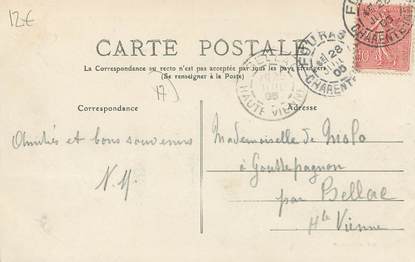 12€
CARTE POSTALE
La Correspondance au recto n'est pas acceptée par tous les pays étrangers
(Se renseigner à la Poste)
FOURAS
28
CHARENTE
HAUTE VIENNE
17
Correspondance
Adresse
Amitiés et bons souvenirs
N.M.
Mademoiselle de Molo
à Gouttepagnon
par Bellac
Hte Vienne